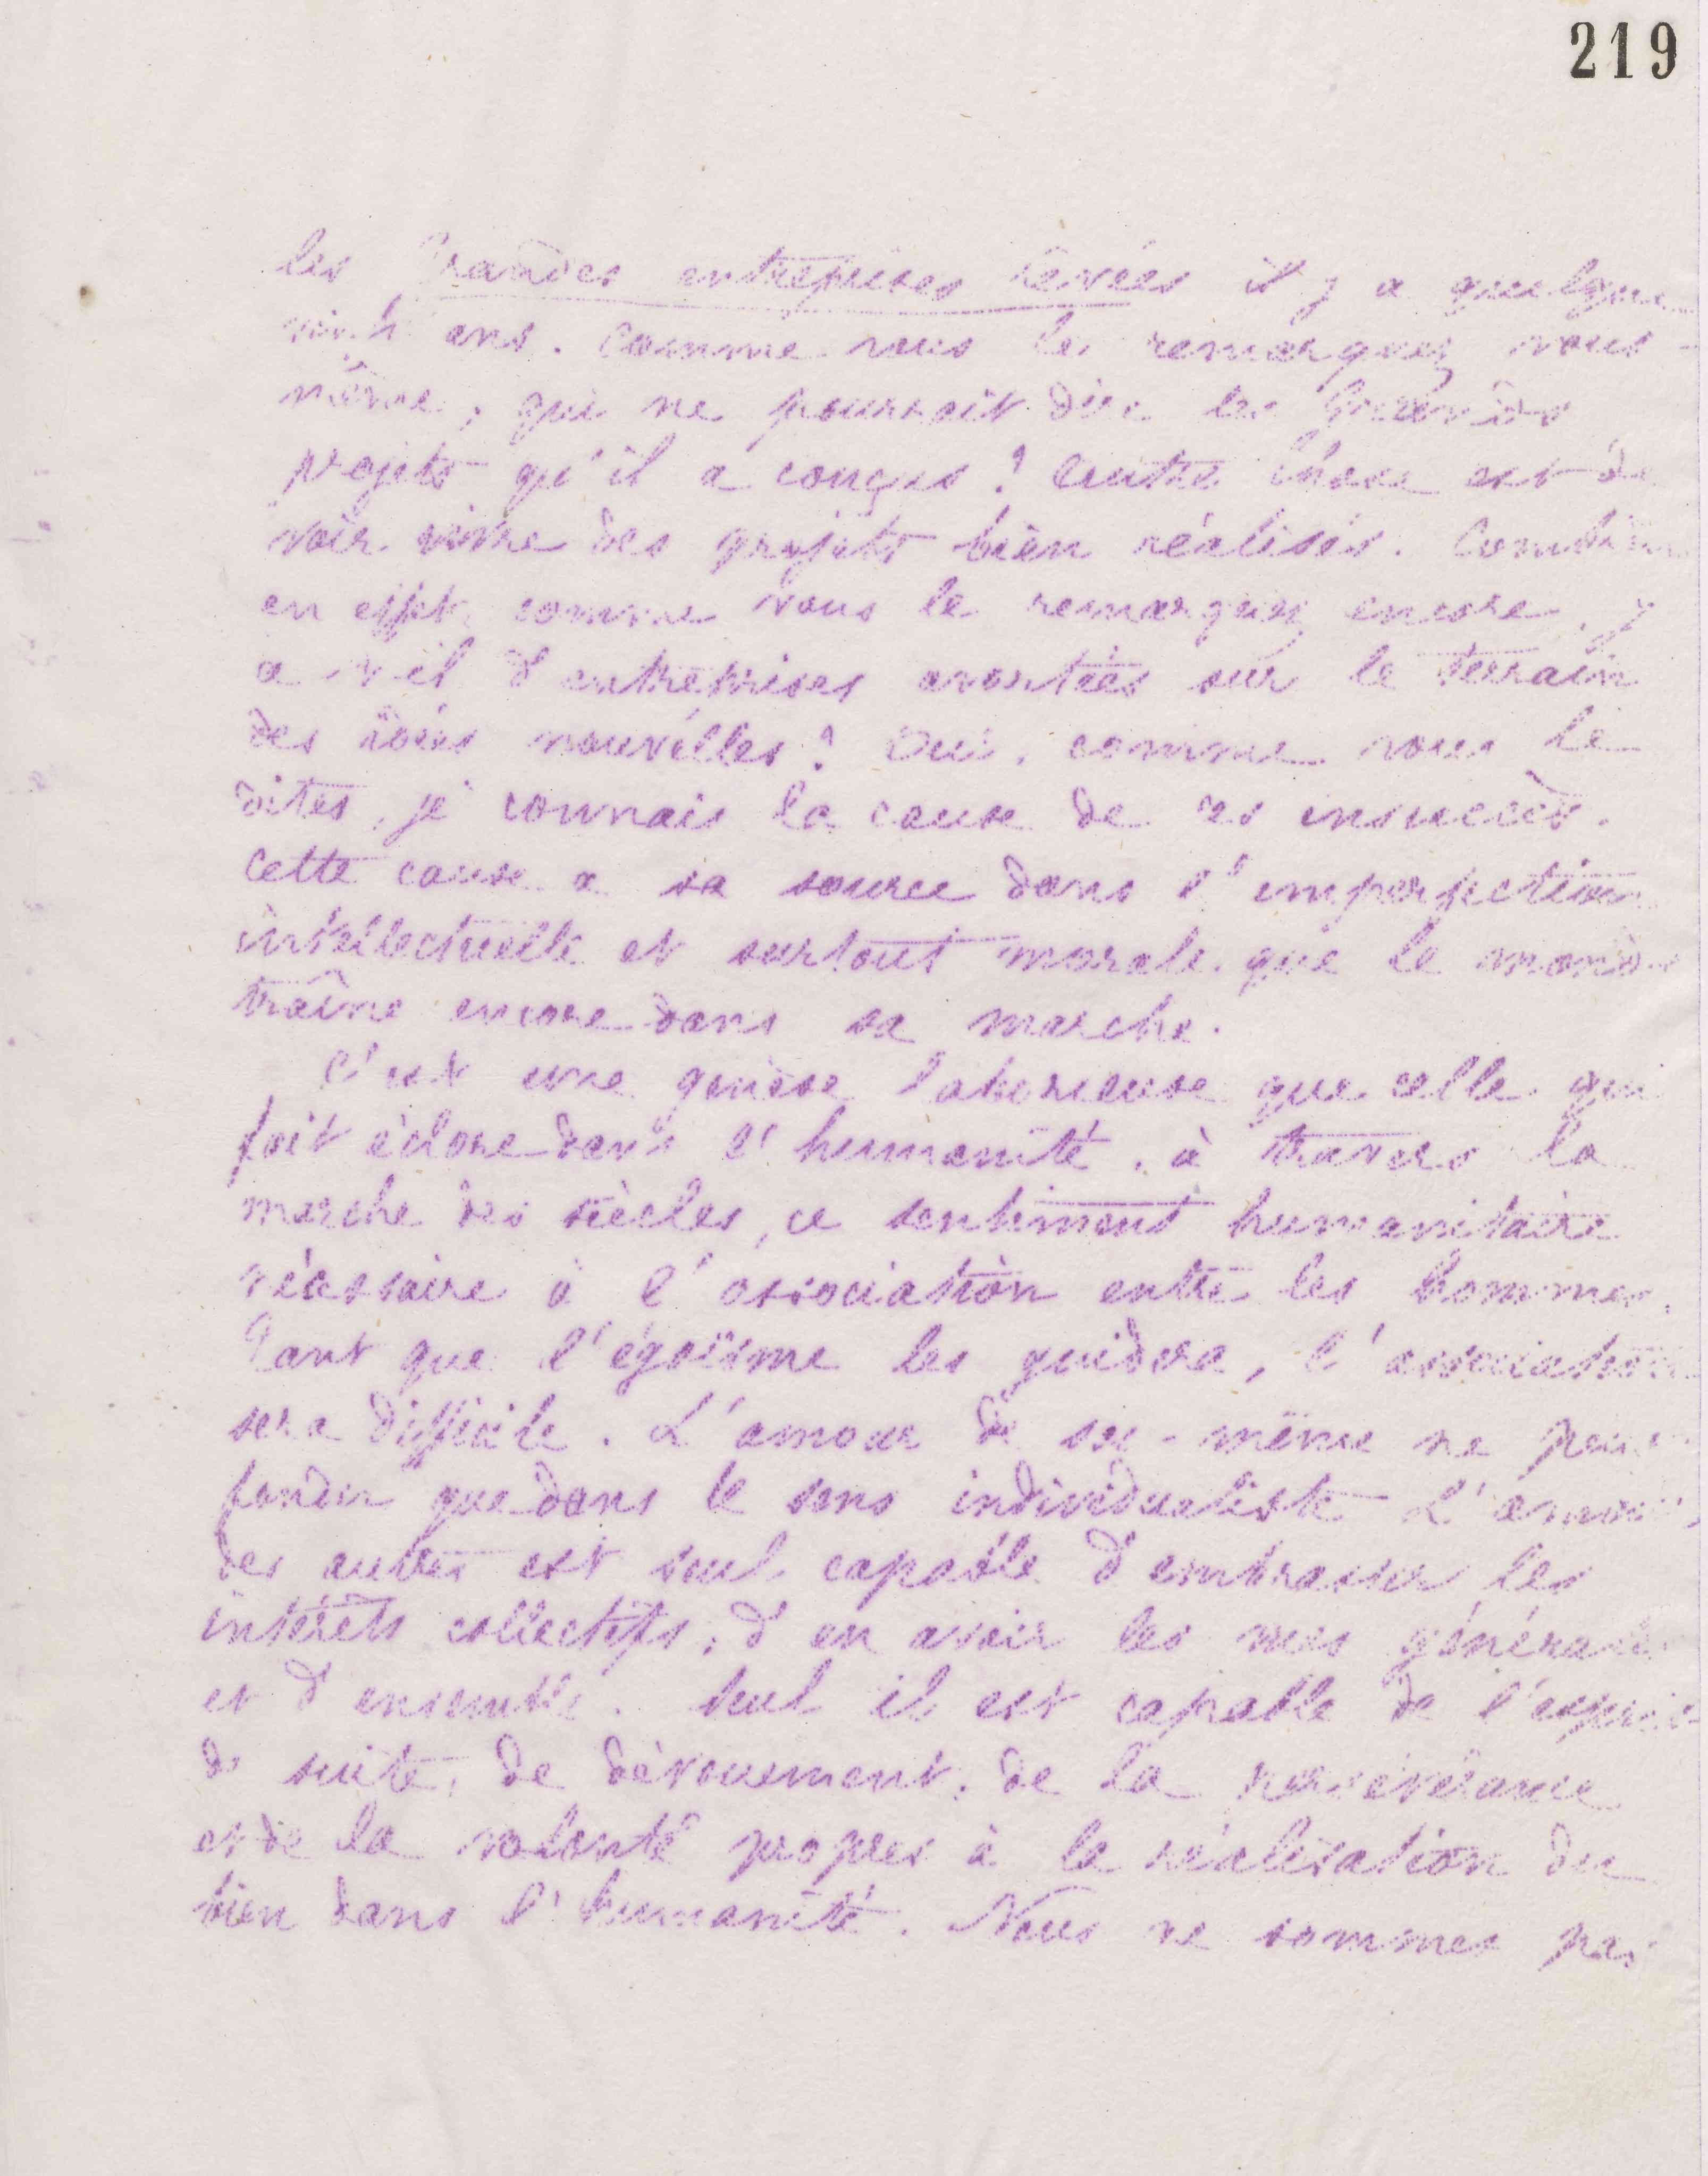 219
les grandes entreprises rêvées il y a quelque
vingt ans. Comme vous le remarquez vous-
même, qui ne pourrait dire les grands
projets qu'il a conçus! Autre chose est de
voir vivre des projets bien réalisés. Combien
en effet, comme vous le remarquez encore, y
a-t-il d'entreprises avortées sur le terrain
des idées nouvelles? Oui, comme vous le
dites, je connais la cause de ces insuccès.
Cette cause a sa source dans l'imperfection
intellectuelle et surtout morale que le monde
traîne encore dans sa marche.
C'est une genèse laborieuse que celle qui
fait éclore dans l'humanité, à travers la
marche des siècles, ce sentiment humanitaire
nécessaire à l'association entre les hommes.
Tant que l'égoïsme les guidera, l'association
sera difficile. L'amour de soi-même ne peut
fonder que dans le sens individualiste. L'amour
des autres est seul capable d'embrasser les
intérêts collectifs, d'en avoir les vues générales
et d'ensemble. Seul il est capable de l'esprit
de suite, de dévouement, de la persévérance
et de la volonté propres à la réalisation du
bien dans l'humanité. Nous ne sommes pas